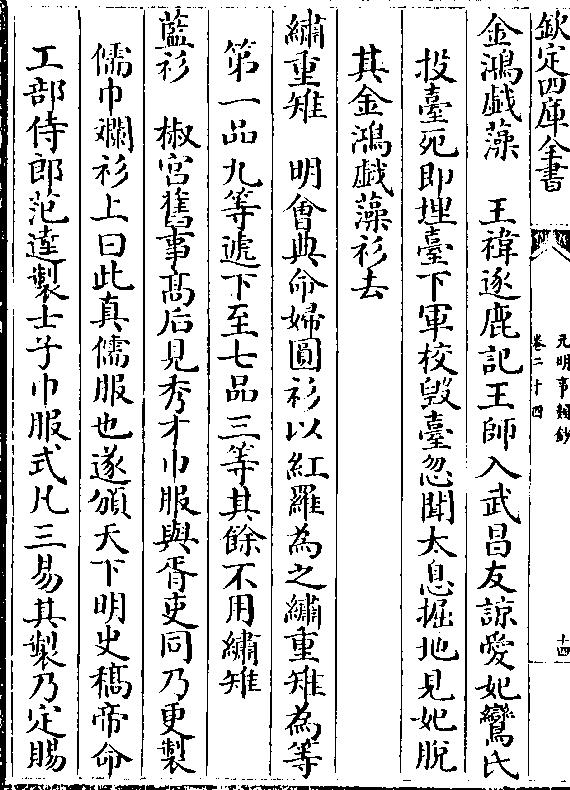 欽定四庫全書
元明事類鈔
卷二十四
十四
金鴻戲藻　王禕逐鹿記王師入武昌友諒愛妃鸞氏
投臺死即埋臺下軍校毀臺忽聞太息掘地見妃脫
其金鴻戲藻衫去
繡重雉　明會典命婦圓衫以紅羅為之繡重雉為等
第一品九等遞下至七品三等其餘不用繡雉
藍衫　椒宮舊事高后見秀才巾服與胥吏同乃更製
儒巾襴衫上曰此真儒服也遂頒天下明史稿帝命
工部侍郎范逹製士子巾服式凡三易其製乃定賜